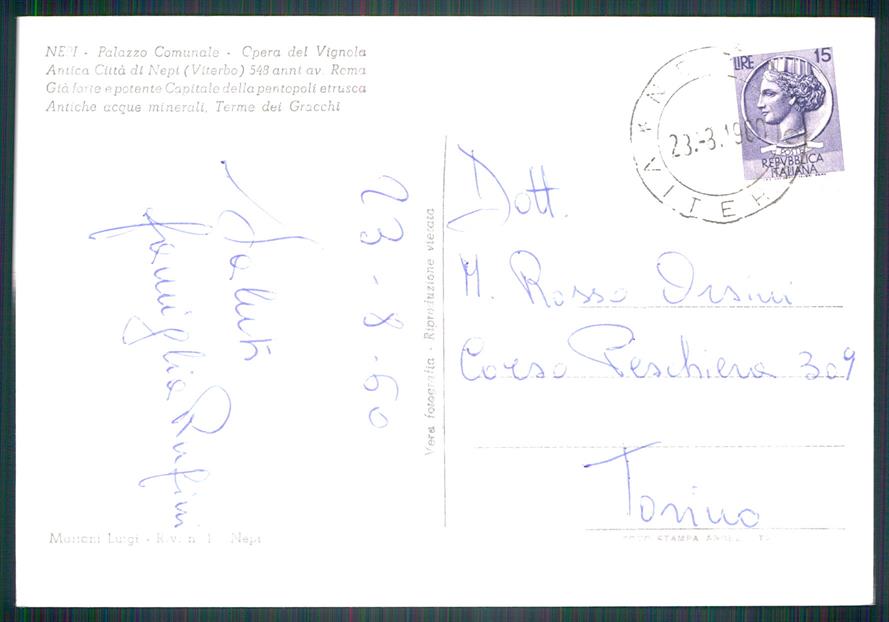 NEPI - Palazzo Comunale - Opera del Vignola
Antica Città di Nepi (Viterbo) 548 anni av. Roma
Già forte e potente Capitale della pentapoli etrusca
Antiche acque minerali, Terme dei Gracchi
LIRE 15
POSTE
REPVBBLICA
ITALIANA
23.-8.1960
23-8-60
Saluti
famiglia Rufini
Vera fotografia - Riproduzione vietata
Dott.
M. Rosso Orsini
Corso Peschiera 309
Torino
Luigi - Riv. n. 1 - Nepi
STAMPA